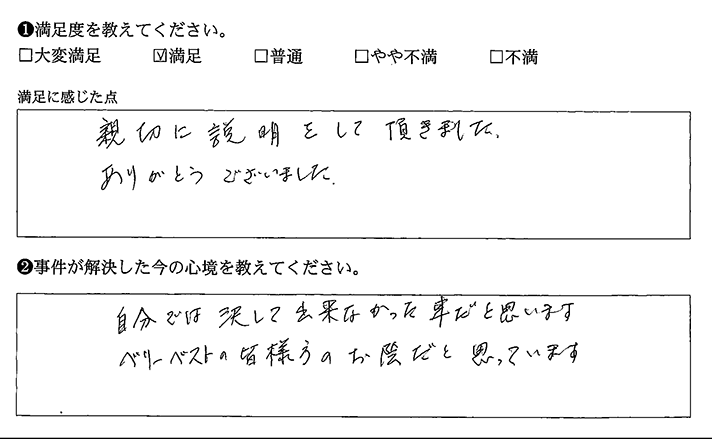 ❶満足度を教えてください。
□大変満足 ☑満足 □普通 □やや不満 □不満
満足に感じた点
親切に説明をして頂きました。
ありがとうございました。
❷事件が解決した今の心境を教えてください。
自分では決して出来なかった事だと思います
ベリーベストの皆様方のお陰だと思っています